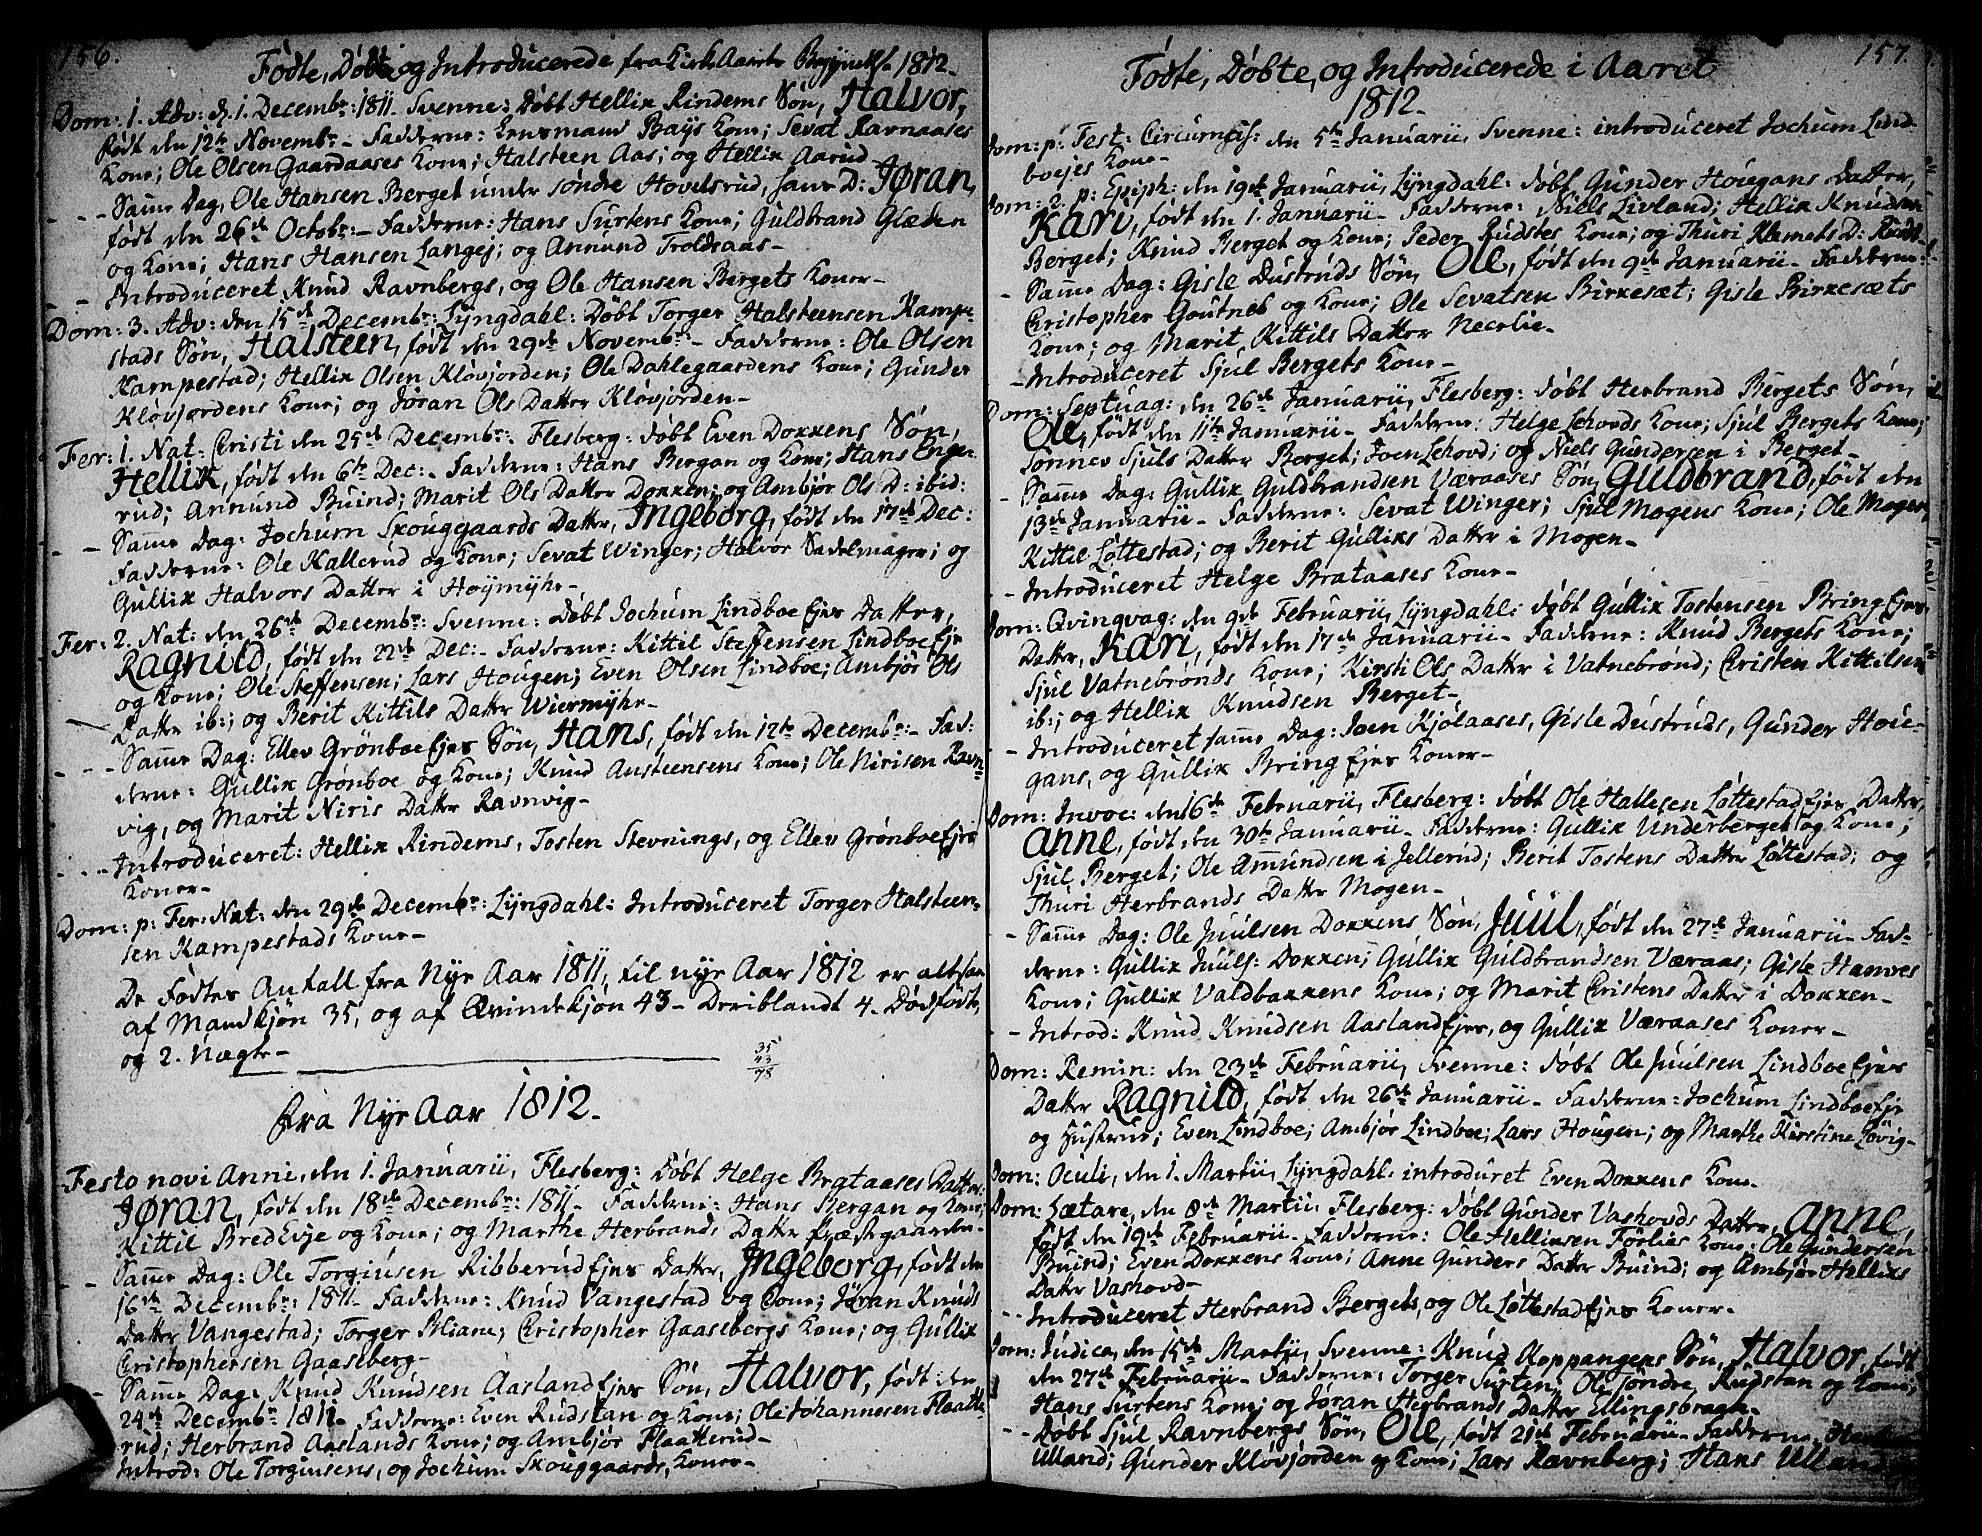 156.
Fødte, Døbte og Introducerede fra Kirke Aarets Begyndelse 1812.
Dom: 1. Adv: d. 1. Decembr: 1811. Svenne: Døbt Hellik Rindems Søn, Halvor,
født den 12te Novembr. Fadderne: Lensmand Bays Kone; Sevat Ravnaases
Kone; Ole Olsen Gaardaases Kone; Halsteen Aas; og Hellik Aarud.
- - - Samme Dag, Ole Hansen Berget under søndre Hovelsrud, hans D: Jøran,
født den 26de Octobr: Fadderne: Hans Surtens Kone; Guldbrand Glæden
og Kone; Hans Hansen Langej; og Annund Troldsaas.
- - Introduceret Knud Ravnbergs, og Ole Hansen Bergets Koner.
Dom: 3. Adv: den 15de Decembr: Lyngdahl: Døbt Torger Halsteensen Kampe-
stads Søn, Halsteen, født den 29de Novembr. Fadderne: Ole Olsen
Kampestad; Hellik Olsen Kløvjorden; Ole Dahlegaardens Kone; Gunder
Kløvjordens Kone; og Jøran Ols Datter Kløvjorden.
Fer: 1. Nat: Cristi den 25de Decembr: Flesberg: døbt Even Dokkens Søn,
Hellik, født den 6te Dec: Fadderne: Hans Bergan og Kone; Hans Enge-
rud; Annund Buind; Marit Ols Datter Dokken; og Ambjør Ols D: ibid:
- - Samme Dag: Jochum Skouggaards Datter, Ingeborg, født den 17de Dec:
Fadderne: Ole Kallerud og Kone; Sevat Winger; Halvor Sadelmager; og
Gullik Halvors Datter i Høymyhr.
Fer: 2. Nat: den 26de Decembr: Svenne: Døbt Jochum Lindboe Ejes Datter,
Ragnild, født den 22de Dec: Fadderne: Kittil Steffensen Lindboe Eje
og Kone; Ole Steffensen; Lars Hougen; Even Olsen Lindboe; Ambjør Ols
Datter ib:; og Berit Kittils Datter Wiermyhr.
- - - Samme Dag: Ellev Grönboe Ejes Søn, Hans, født den 12te Decembr: Fad-
derne: Gullik Grönboe og Kone; Knud Ansteensens Kone; Ole Nirisen Ravn-
vig, og Marit Niris Datter Ravnvig.
- - - Introduceret: Hellik Rindems, Tosten Stevnings, og Ellev Grönboe Ejes
Koner.
Dom: p: Fer: Nat: den 29de Decembr: Lyngdahl: Introduceret Torger Halsteen-
sen Kampestads Kone.
De Fødtes Antall fra Nye Aar 1811, til nye Aar 1812 er altsaa
af Mandkjøn 35, og af Qvindekjøn 43. Deriblandt 4. Dødfødte,
og 2. Uægte.
35
43
78
Fra Nye Aar 1812.
Festo novi Anni, den 1. Januarii, Flesberg: Døbt Helge Brataases Datter:
Jøran, født den 18de Decembr: 1811. Fadderne: Hans Bergan og Kone;
Kittil Bred Evje og Kone; og Marthe Herbrands Datter Præstgaarden.
- Samme Dag: Ole Torgiusen Ribberud Ejes Datter, Ingeborg, født den
16de Decembr: 1811. Fadderne: Knud Vangestad og Kone; Jøran Knuds
Datter Vangestad; Torger Bliane; Christopher Gaasebergs Kone; og Gullik
Christophersen Gaaseberg.
- Samme Dag: Knud Knudsen Aasland Ejes Søn, Halvor, født den
24de Decembr. 1811. Fadderne: Even Rudstan og Kone; Ole Johannesen Flaatte-
rud; Herbrand Aaslands Kone; og Ambjør Flaatterud.
Introd: Ole Torgiusens, og Jochum Skouggaards, Koner.

157.
Fødte, Døbte, og Introducerede i Aaret
1812.
Dom: p: Fest: Circumcis: den 5te Januarii, Svenne: introduceret Jochum Lind-
boejes Kone.
Dom: 2. p: Epiph: den 19de Januarii, Lyngdahl: døbt Gunder Hougans Datter,
Kari, født den 1. Januarii. Fadderne: Niels Livland; Hellik Knudsen
Berget; Knud Berget og Kone; Peder Rudstes Kone; og Thuri Klemets D:
- Samme Dag: Gisle Dustruds Søn, Ole, født den 9de Januarii. Fadderne:
Christopher Goutnes og Kone; Ole Sevatsen Birkesæt; Gisle Birkesæts
Kone; og Marit Kittils Datter Necolie.
- Introduceret Sjul Bergets Kone.
Dom: Septuag: den 26de Januarii, Flesberg: døbt Herbrand Bergets Søn,
Ole, født den 11te Januarii. Fadderne: Helge Lehovds Kone; Sjul Bergets Kone;
Sønnev Sjuls Datter Berget; Joen Lehovd; og Niels Gundersen i Berget.
- Samme Dag: Gullik Guldbrandsen Væraases Søn, Guldbrand, født den
13de Januarii. Fadderne: Sevat Winger; Sjul Mogens Kone; Ole Mogen;
Kittil Løttestad; og Berit Gulliks Datter i Mogen.
- Introduceret Helge Brataases Kone.
Dom: Qvinqvag: den 9de Februarii, Lyngdahl: døbt Gullik Tostensen Bring Ejes
Datter, Kari, født den 17de Januarii. Fadderne: Knud Bergets Kone;
Sjul Vatnebrønds Kone; Kirsti Ols Datter i Vatnebrønd; Cristen Kittilsen
ib:; og Hellik Knudsen Berget.
- Introduceret samme Dag: Joen Kjølaases, Gisle Dustruds, Gunder Hou-
gans, og Gullik Bring Ejes Koner.
Dom: Invoc: den 16de Februarii, Flesberg: døbt Ole Hallesen Løttestad Ejes Datter,
Anne, født den 30te Januarii. Fadderne: Gullik Underberget og Kone;
Sjul Berget; Ole Amundsen i Jellerud; Berit Tostens Datter Løttestad; og
Thuri Herbrands Datter Mogen.
- Samme Dag: Ole Juulsen Dokkens Søn, Juul, født den 27de Januarii. Fad-
derne: Gullik Juuls: Dokken; Gullik Guldbrandsen Væraas; Gisle Hanves
Kone; Gullik Valdbakkens Kone; og Marit Cristens Datter i Dokken.
- Introd: Knud Knudsen Aasland Ejes, og Gullik Væraases Koner.
Dom: Remin: den 23de Februarii, Svenne: døbt Ole Juulsen Lindboe Ejes
Datter Ragnild, født den 26de Januarii. Fadderne: Jochum Lindboe Eje
og Hustrue; Even Lindboe; Ambjør Lindboe; Lars Hougen; og Marthe Kirstine Løvig.
Dom: Oculi, den 1. Martii, Lyngdahl: introduret Even Dokkens Kone.
Dom: Lætare, den 8de Martii, Flesberg: døbt Gunder Vashovds Datter, Anne,
født den 19de Februarii. Fadderne: Ole Helliksen Førlies Kone; Ole Gundersen
Buind; Even Dokkens Kone; Anne Gunders Datter Buind; og Ambjør Helliks
Datter Vashovd.
- Introduceret Herbrand Bergets, og Ole Løttestad Ejes Koner.
Dom: Judica, den 15de Martii, Svenne: Knud Koppangens Søn, Halvor, født
den 27de Februarii. Fadderne: Torger Surten; Ole søndre Rudstan og Kone;
Hans Surtens Kone; og Jøran Herbrands Datter Ellingsbragt.
- - Døbt Sjul Ravnbergs Søn, Ole, født 21de Februarii. Fadderne,
Ulland; Gunder Kløvjorden og Kone; Lars Ravnberg; Hans Ulland